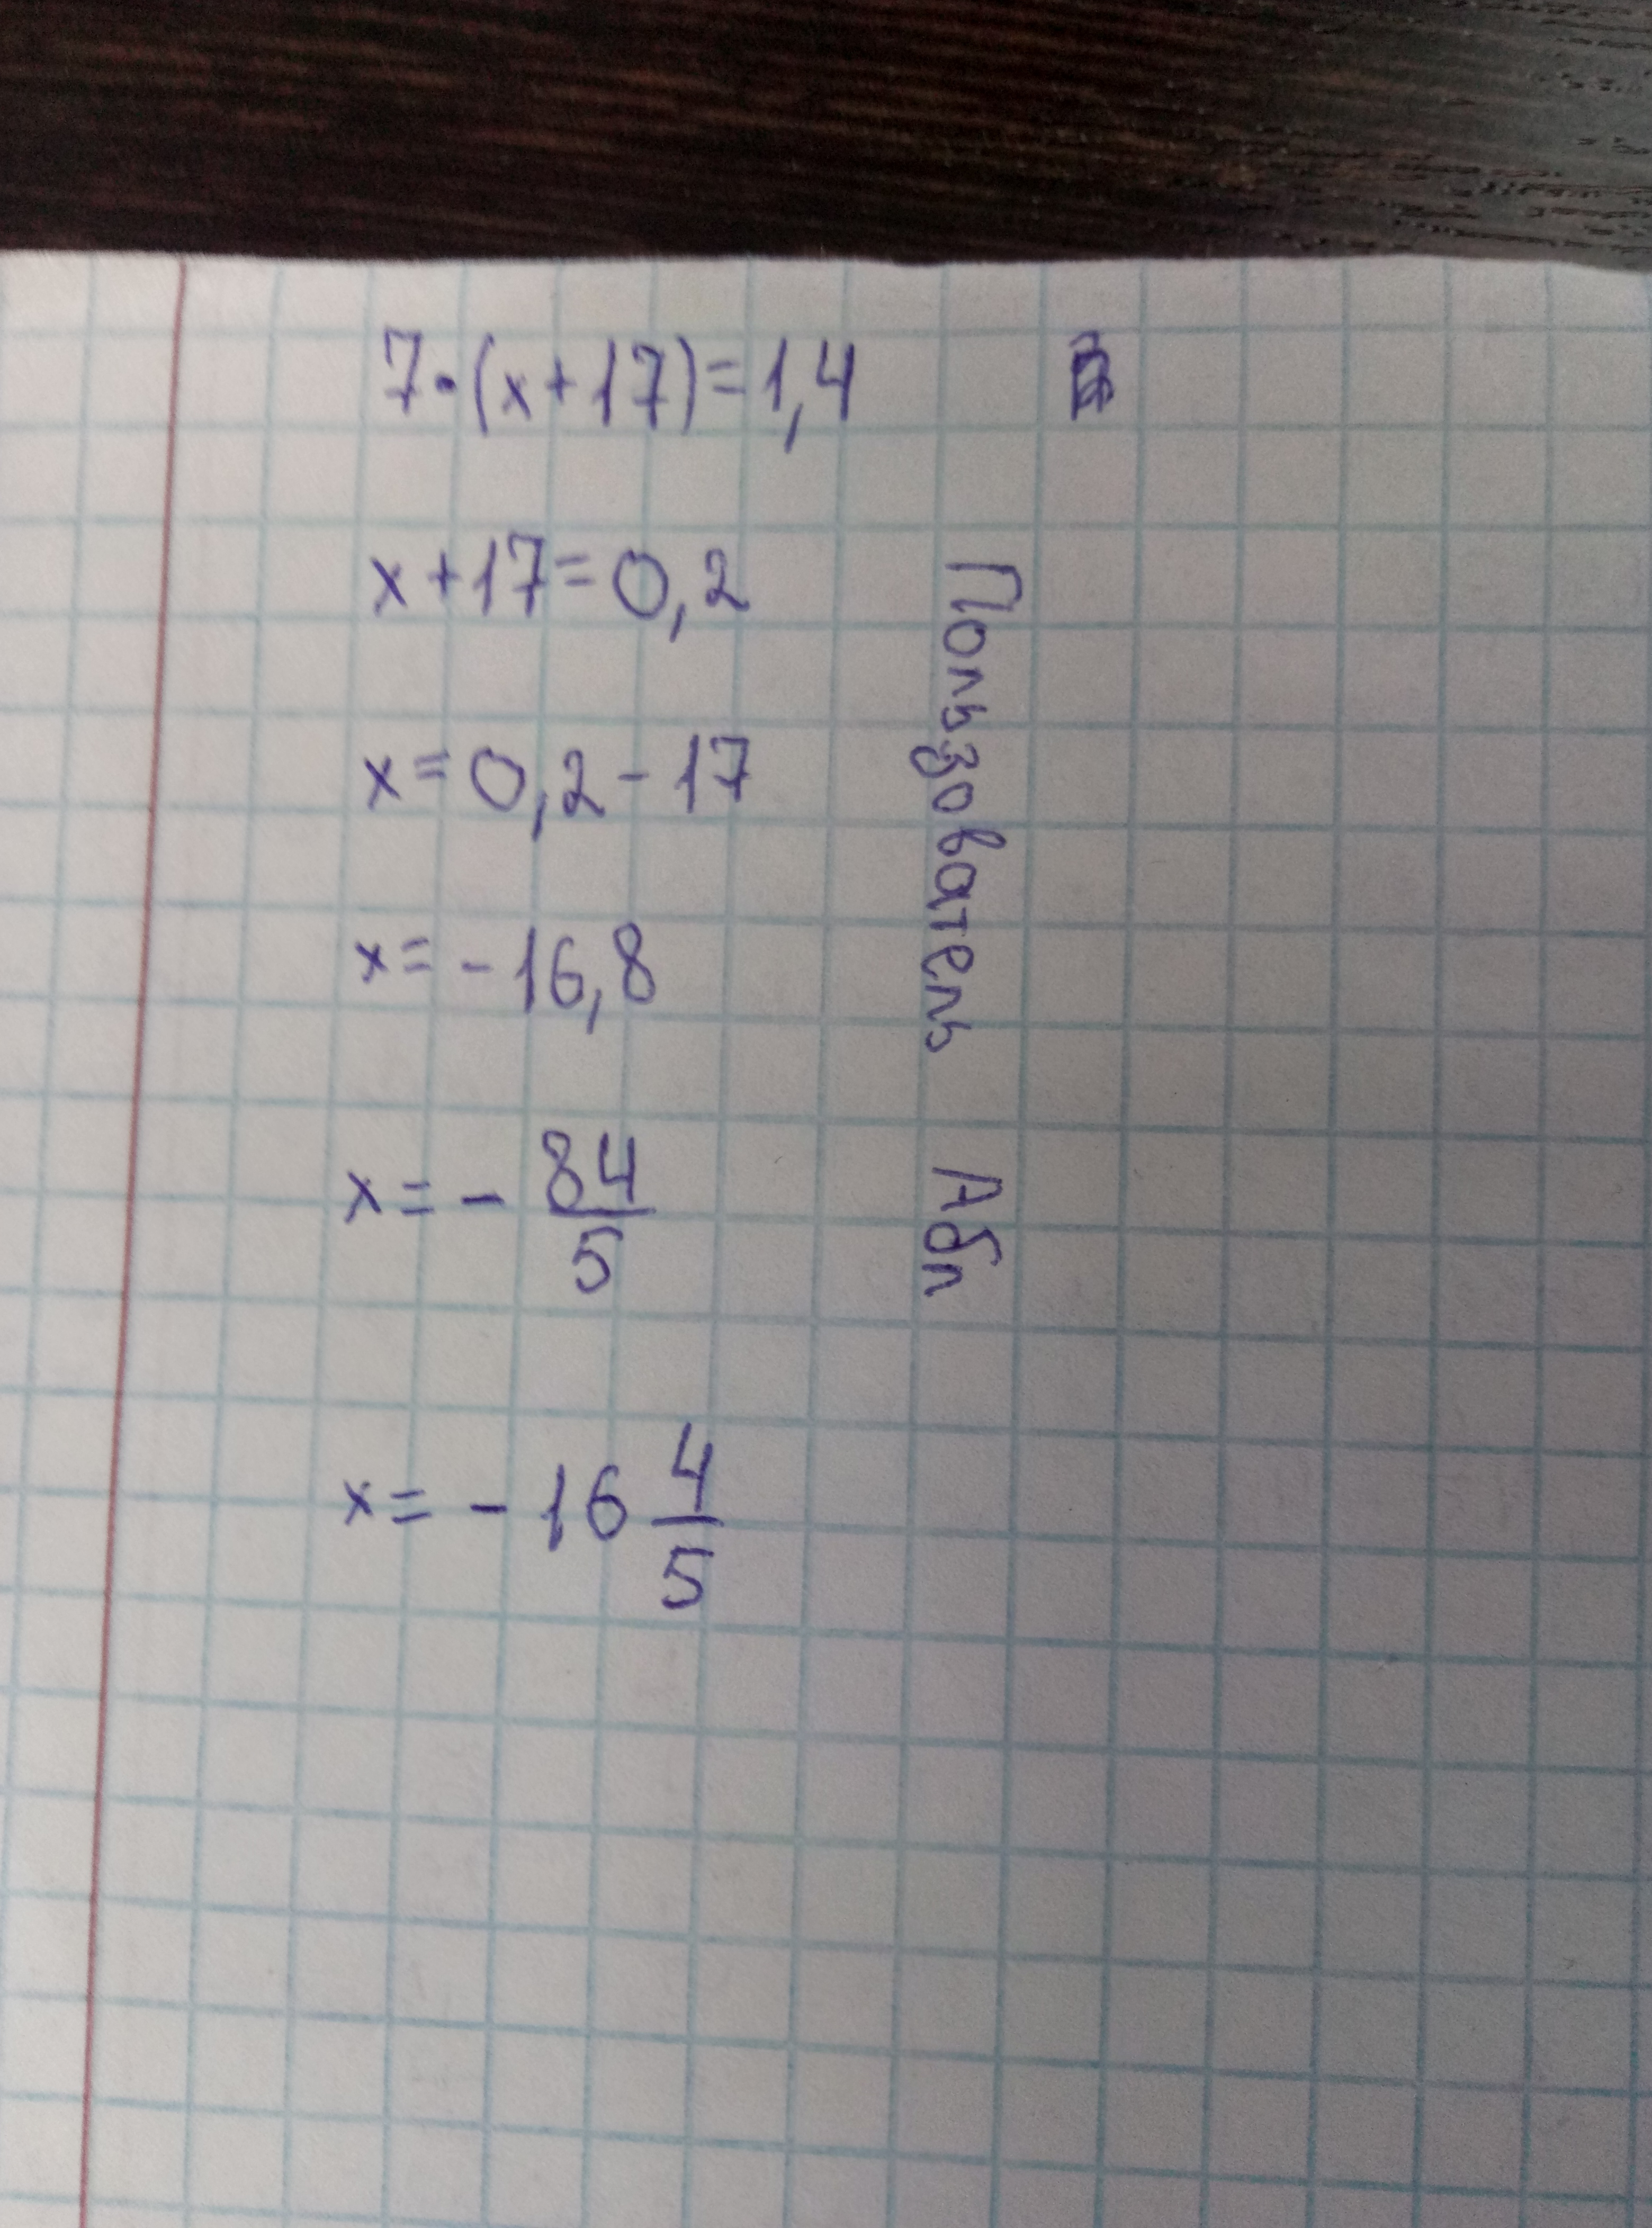 7·(x+17)=1,4
x+17=0,2
x=0,2-17
x=-16,8
x=-84/5
x=-16 4/5
Пользователь Абл